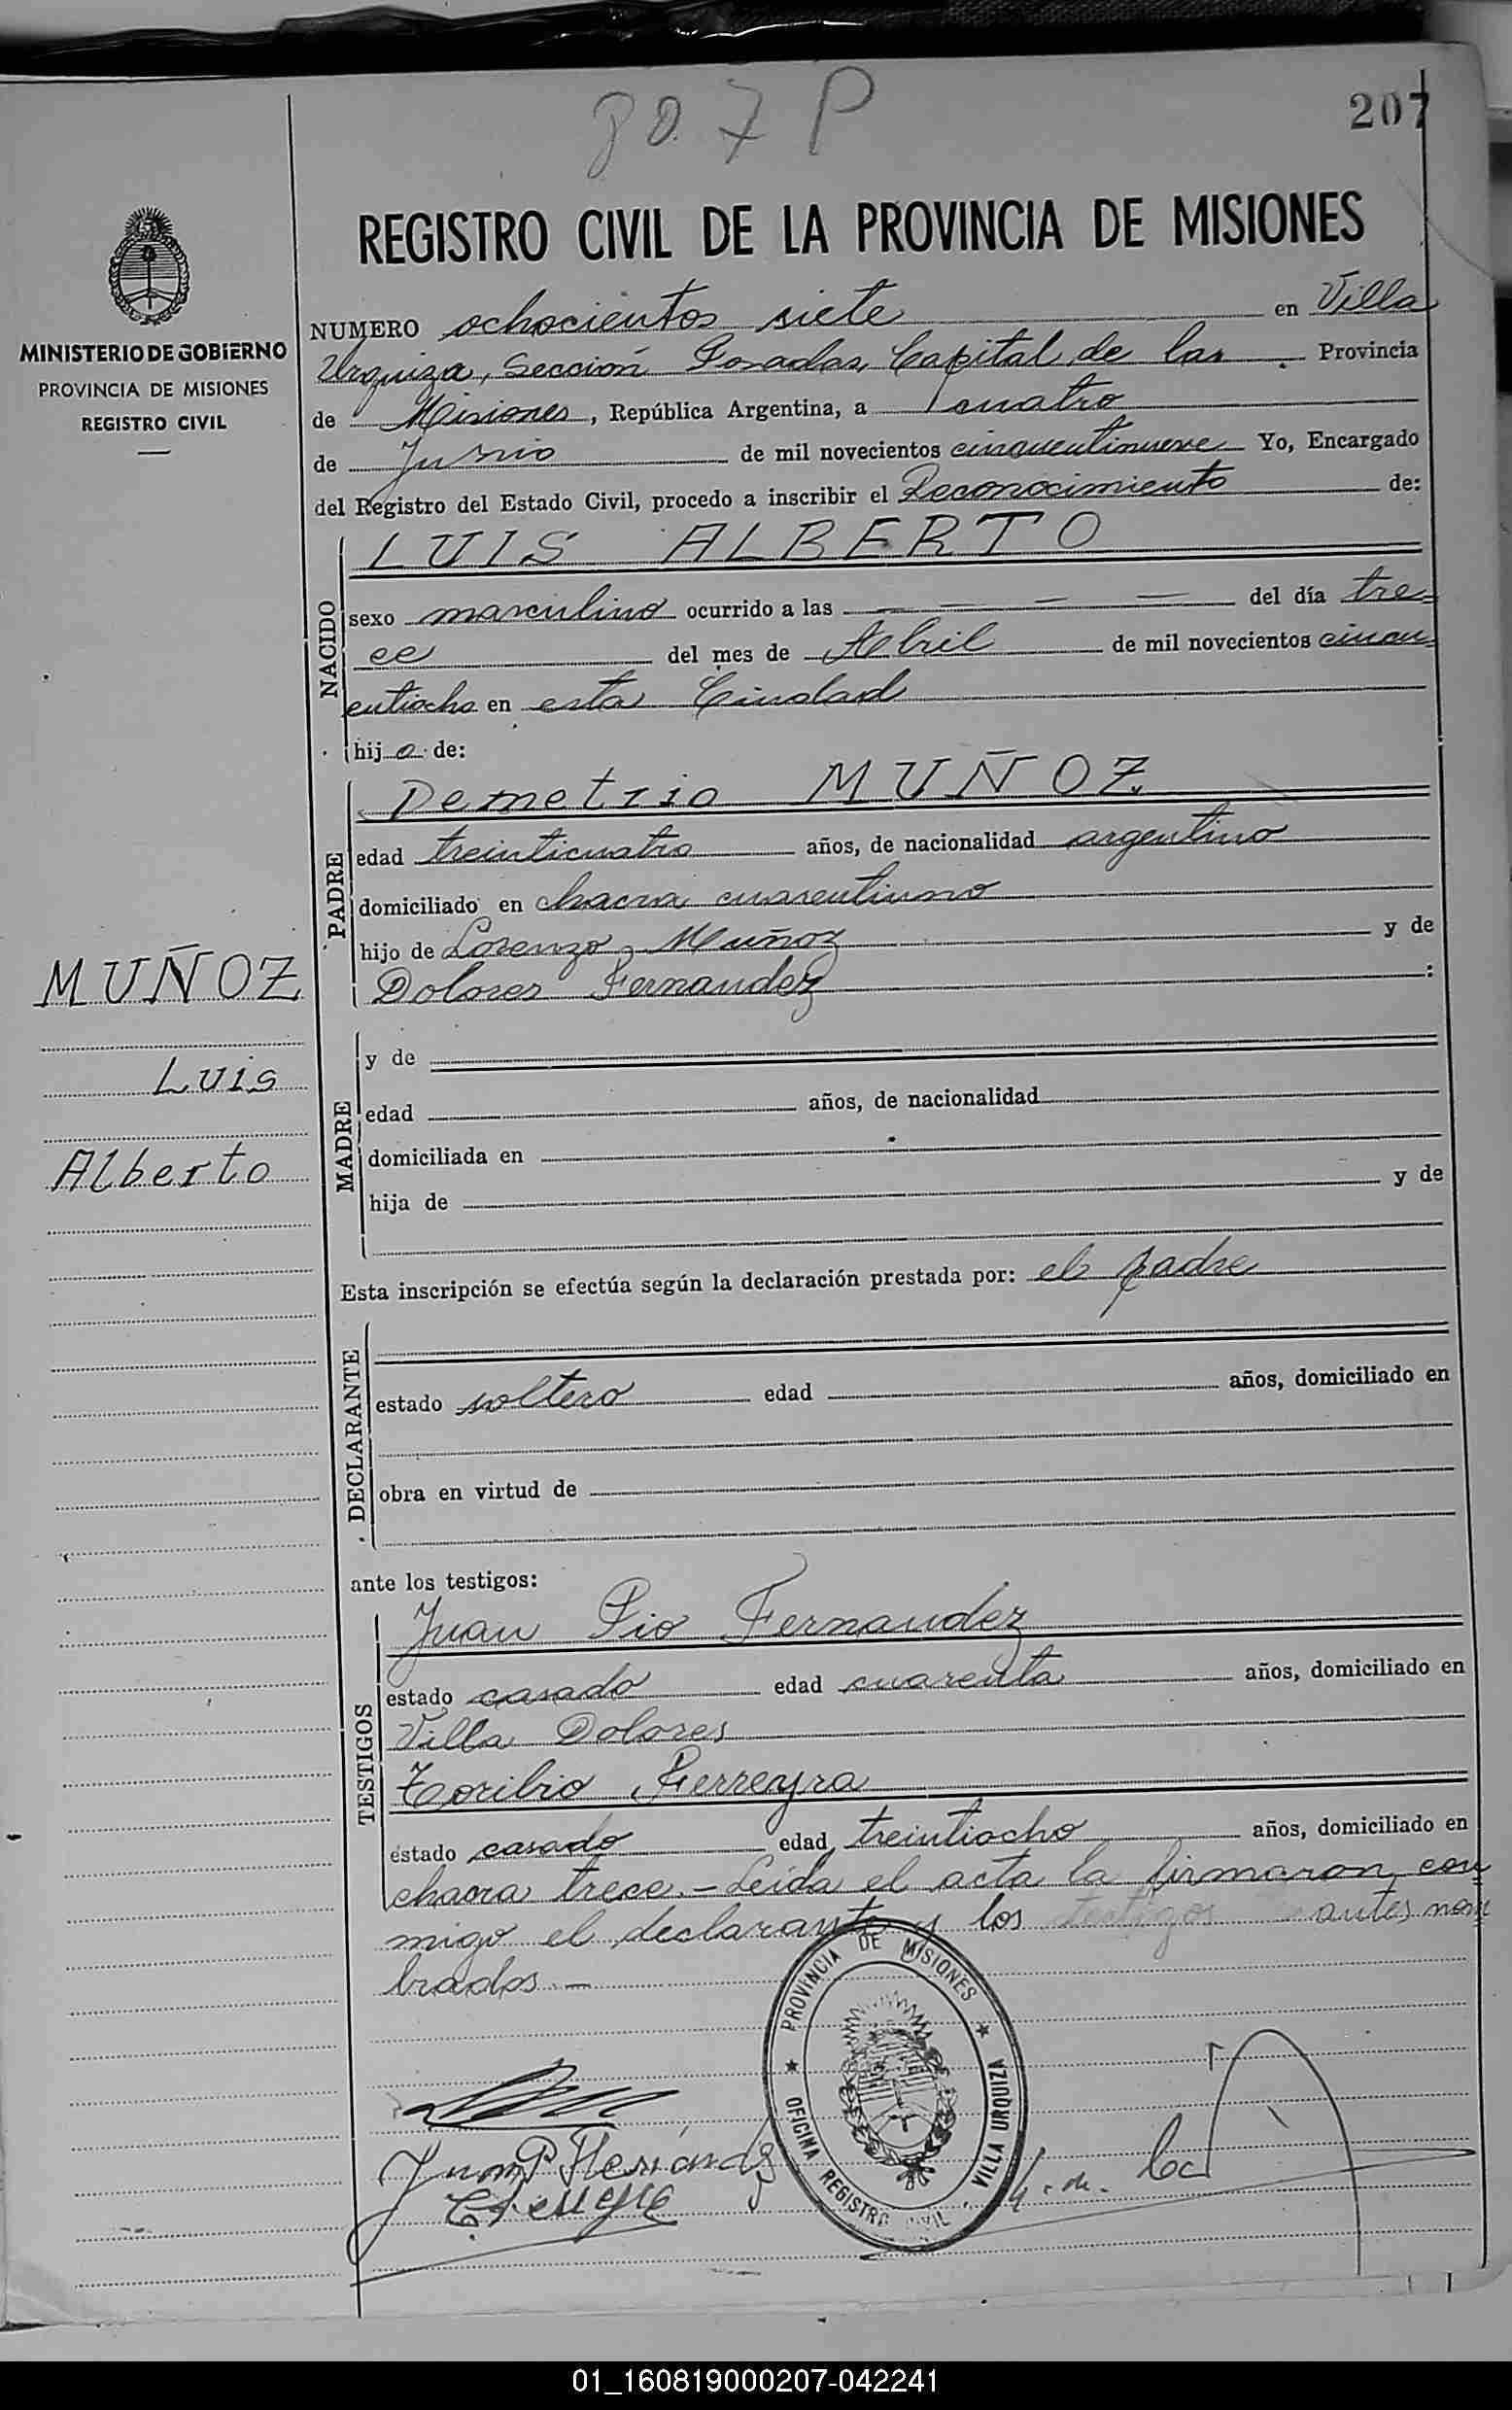 807 P
207
REGISTRO CIVIL DE LA PROVINCIA DE MISIONES
MINISTERIO DE GOBIERNO
PROVINCIA DE MISIONES
REGISTRO CIVIL
NUMERO ochocientos siete en Villa
Urquiza, Sección Posadas, Capital de las Provincia
de Misiones, República Argentina, a cuatro
de Junio de mil novecientos cincuentinueve Yo, Encargado
del Registro del Estado Civil, procedo a inscribir el Reconocimiento de:
NACIDO
LUIS ALBERTO
sexo masculino ocurrido a las — — — — del día tre=
ce del mes de Abril de mil novecientos cincu=
entiocho en esta Ciudad
hijo de:
PADRE
Demetrio MUÑOZ
edad treinticuatro años, de nacionalidad argentino
domiciliado en chacra cuarentiuno
hijo de Lorenzo Muñoz y de
Dolores Fernandez :
MUÑOZ
Luis
Alberto
MADRE
y de
edad años, de nacionalidad
domiciliada en
hija de y de
Esta inscripción se efectúa según la declaración prestada por: el padre
DECLARANTE
estado soltero edad años, domiciliado en
obra en virtud de
ante los testigos:
TESTIGOS
Juan Pio Fernandez
estado casado edad cuarenta años, domiciliado en
Villa Dolores
Toribio Ferreyra
estado casado edad treintiocho años, domiciliado en
chacra trece.- Leída el acta la firmaron con
migo el declarante y los testigos antes nom
brados.-
PROVINCIA DE MISIONES
OFICINA REGISTRO CIVIL VILLA URQUIZA
01_160819000207-042241